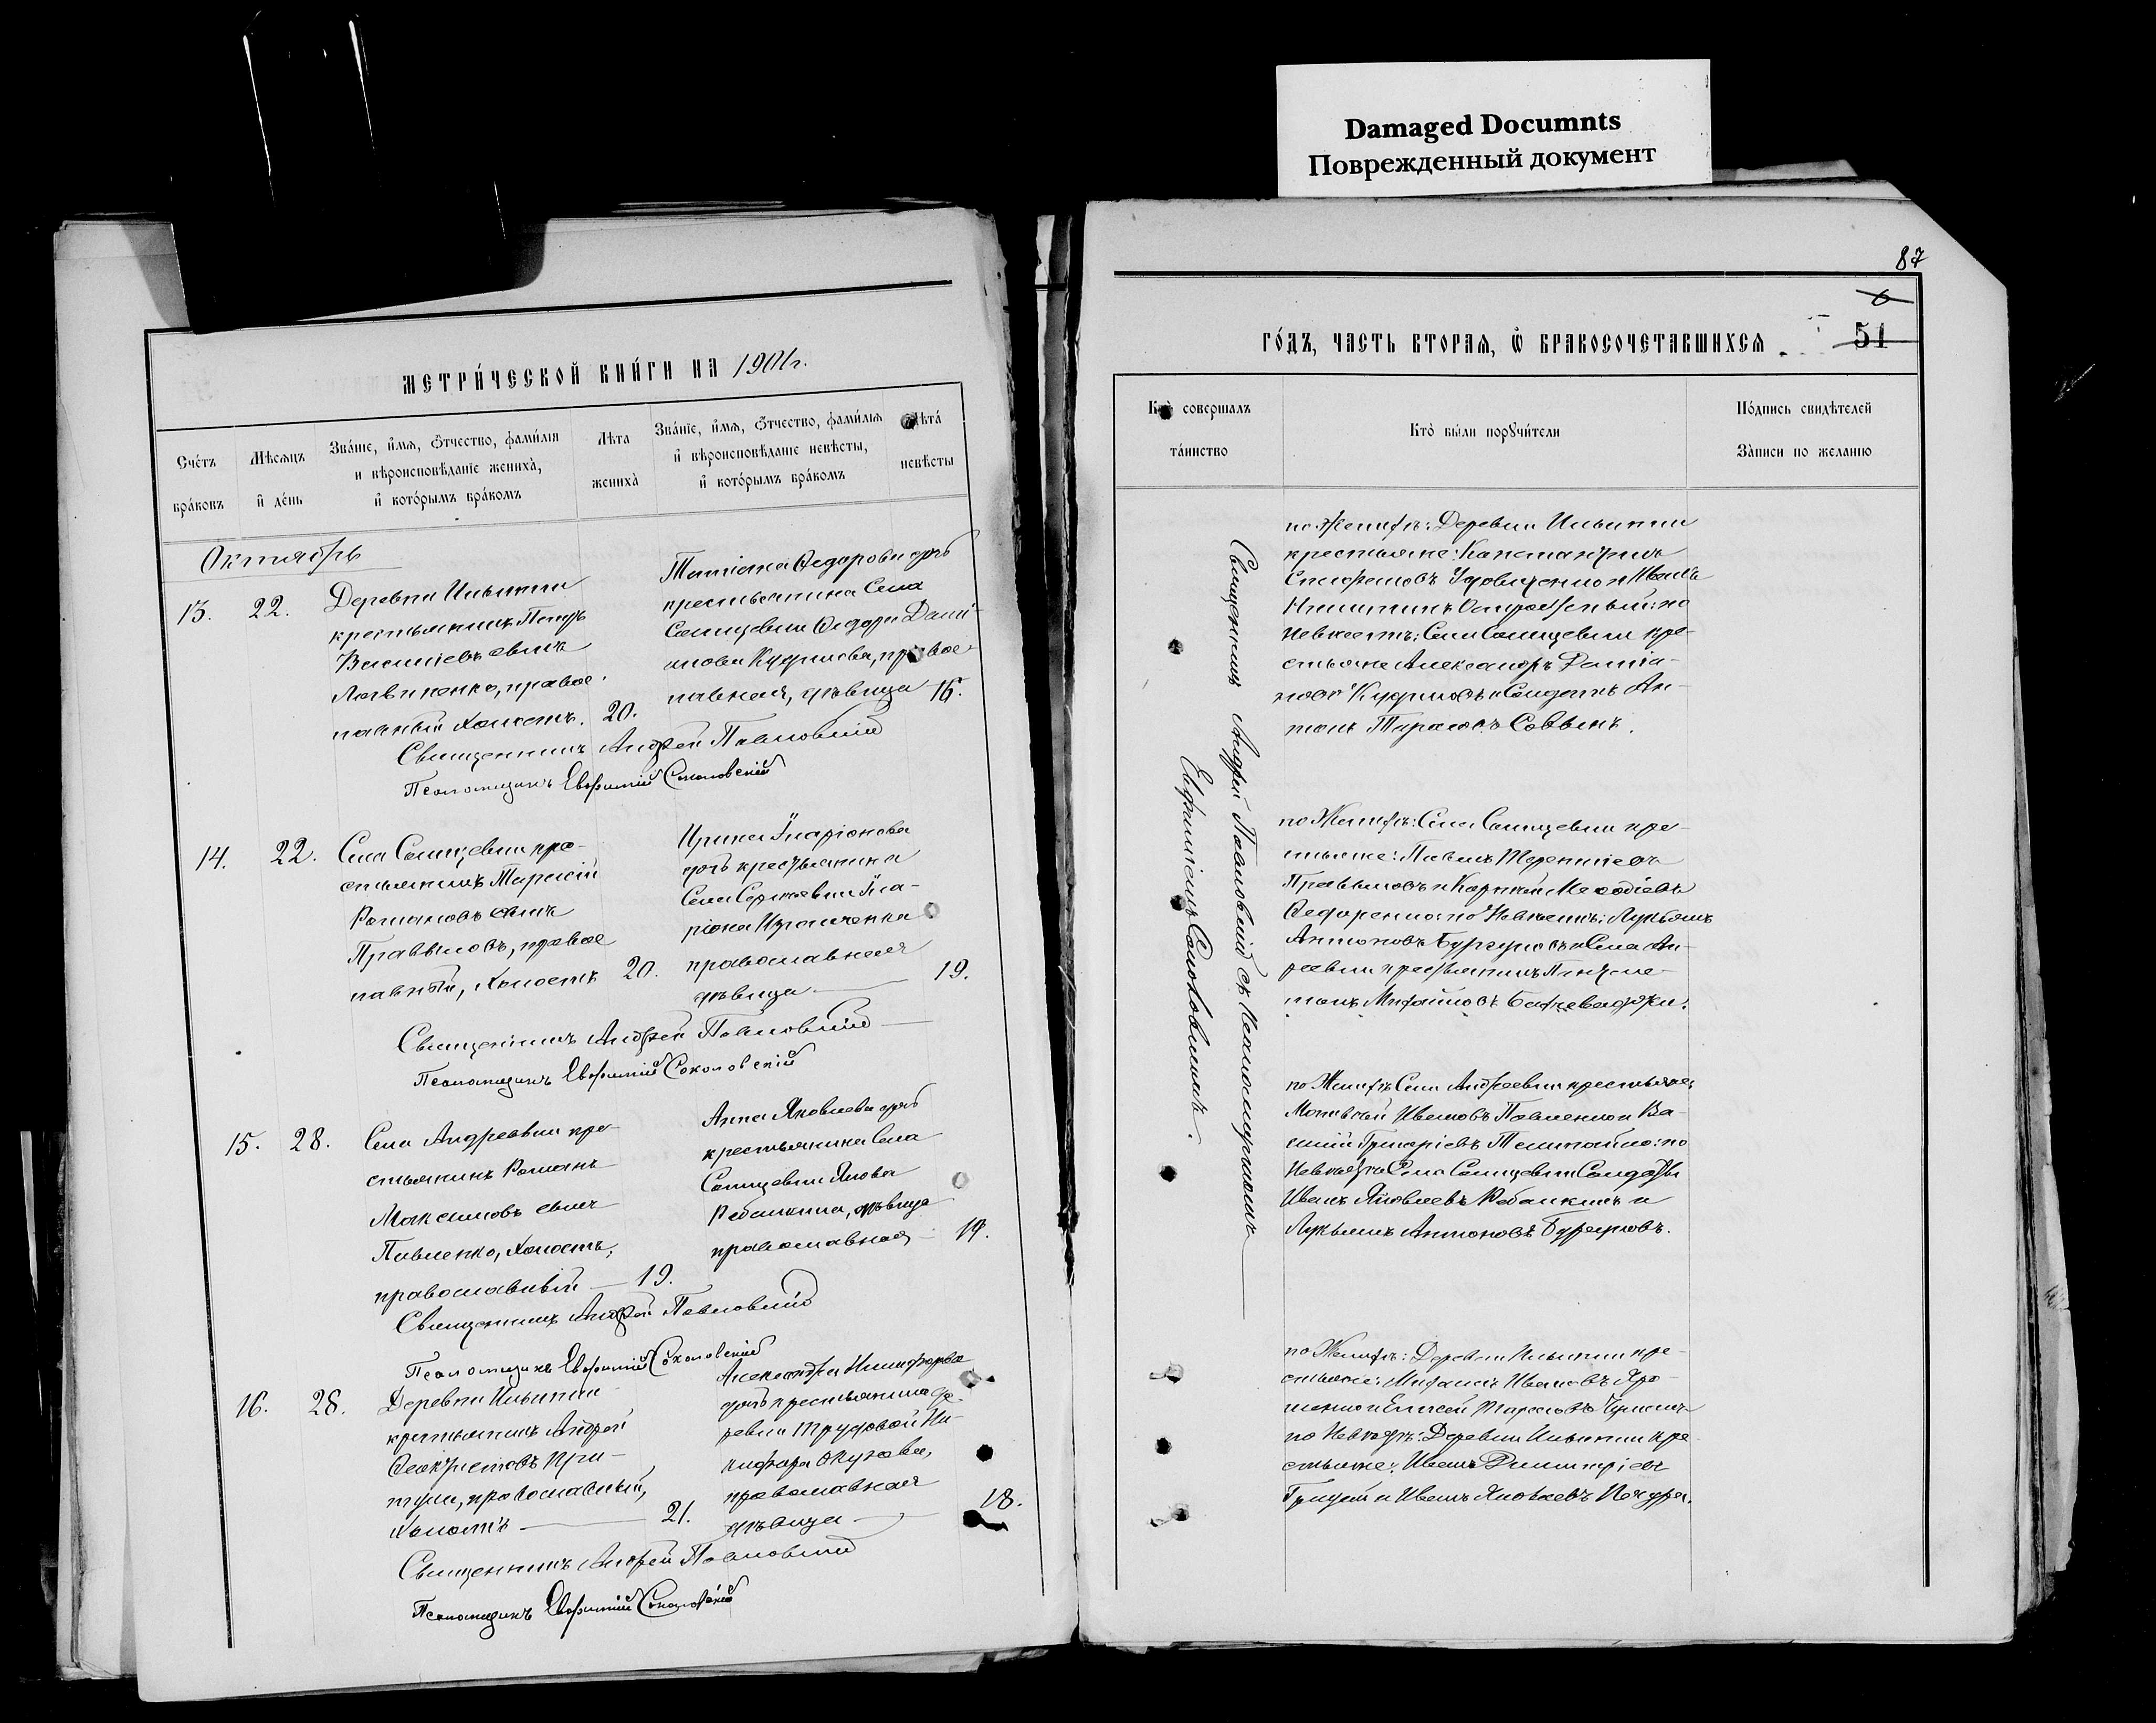 Damaged Documnts
Поврежденный документ
87
6
51
МЕТРИ́ЧЕСКОЙ КНИ́ГИ НА 1901 г.
Сче́тъ бра́ковъ
Мѣсяцъ и де́нь
Зва́нїе, и́мя, ѻ҆́тчество, фами́лїя
и вѣроисповѣданїе жениха̀,
и҆ кото́рымъ бра́комъ
Лѣта жениха̀
Зва́нїе, и́мя, ѻ҆́тчество, фами́лїя
и҆ вѣроисповѣданїе невѣсты,
и҆ кото́рымъ бра́комъ
Лѣта́ невѣсты
Октябрь
13.
22.
Деревни Ильинки
крестьянинъ Петръ
Василіевъ сынъ
Литвиненко, правос
лавный холостъ.
20.
Татіана Ѳедорова дочь
крестьянина Села
Солнцевки Ѳедора Дамі
анова Кудрисва, правос
лавная, дѣвица
16.
Священникъ Андрей Павловскій
Псаломщикъ Евфимій Соколовскій
14.
22.
Села Солнцевки кре-
стьянинъ Тарасій
Романовъ сынъ
правос
лавный, холостъ
20.
Ирина Иларіонова
дочь крестьянина
Села Сергѣевки Ила-
ріона
православная
дѣвица
19.
Священникъ Андрей Павловскій
Псаломщикъ Евфимій Соколовскій
15.
28.
Села Андреевки кре-
стьянинъ Романъ
Максимовъ сынъ
Павленко, холостъ,
православный
19.
Анна Яковлева дочь
крестьянина Села
Солнцевки Якова
Ребалкина, дѣвица
православная
19.
Священникъ Андрей Павловскій
Псаломщикъ Евфимій Соколовскій
16.
28.
Деревни Ильинки
крестьянинъ Андрей
Ѳеоктистовъ При-
тула, православный,
холостъ
21.
Александра Никифорова
дочь крестьянина де-
ревни Трудовой Ни-
кифора
православная
дѣвица
18.
Священникъ Андрей Павловскій
Псаломщикъ Евфимій Соколовскій
ГО́ДЪ, ЧАСТЬ ВТОРАЯ, Ѡ҆ БРАКОСОЧЕТАВШИХСЯ
Кто̀ совершалъ та́инство
Кто̀ бы́ли порꙋчи́тели
По́дпись свидѣ́телей
За̀писи по желанїю
Священникъ Андрей Павловскій съ псаломщикомъ
Евфиміемъ Соколовскимъ.
по Женихѣ: Деревни Ильинки
крестьяне: Константинъ
Стефановъ Удовиченко и Иванъ
Никитинъ по
Невѣстѣ: Села Солнцевки кре-
стьяне Александръ Даміа-
новъ и Солдатъ Ан-
тонъ Тарасовъ Саввинъ.
по Женихѣ: Села Солнцевки кре-
стьяне: Павелъ Терентіевъ
и Карпъ Меѳодіевъ
Ѳедоренко: по Невѣстѣ: Лукьянъ
Антоновъ и Села Ан-
реевки крестьянинъ Пантеле-
монъ Михайловъ
по Женихѣ Села Андреевки крестьяне:
Матвѣй Ивановъ Павленко и Ва-
силій Григоріевъ по
Невѣстѣ Села Солнцевки Солдаты
Иванъ Яковлевъ Ребалкинъ и
Лукьянъ Антоновъ
по Женихѣ: Деревни Ильинки кре-
стьяне: Михаилъ Ивановъ Яро-
шенко и Елисей Тарасовъ
по Невѣстѣ: Деревни Ильинки кре-
стьяне: Иванъ Димитріевъ
Грицай и Иванъ Яковлевъ